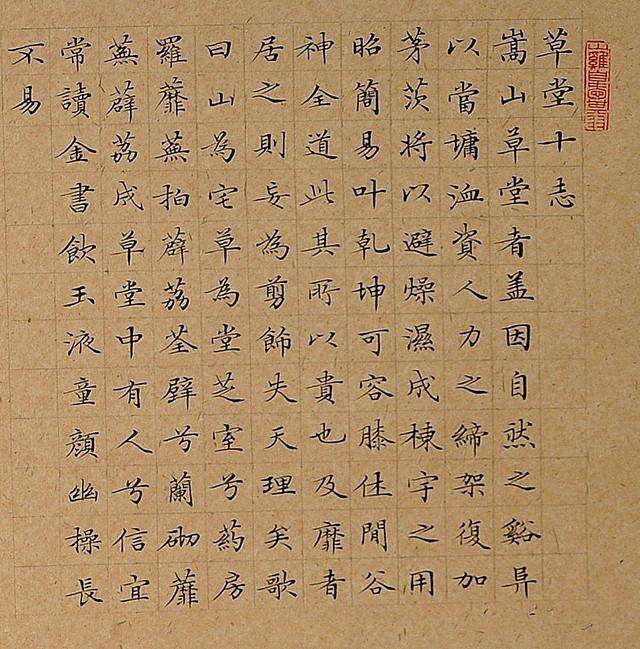 草堂十志
嵩山草堂者盖因自然之谿异
以當墉洫資人力之締架復加
茅茨将以避燥濕成棟宇之用
昭簡易叶乾坤可容膝休閒谷
神全道此其所以貴也及靡者
居之則妄為剪飾失天理矣歌
曰山為宅草為堂芝室兮葯房
羅蘼蕪拍薜荔荃壁兮蘭砌蘼
蕪薜荔成草堂中有人兮信宜
常讀金書飲玉液童顔幽操長
不易